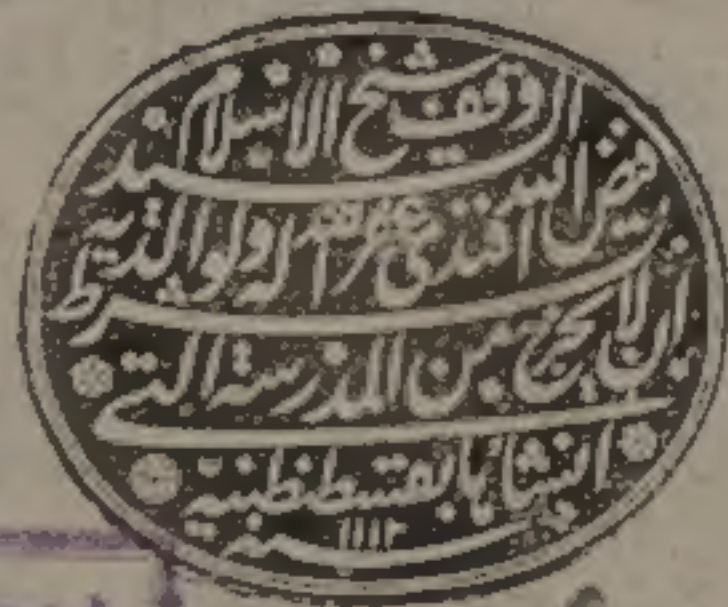 وقف شيخ الاسلام السيد
فيض الله افندى غفر الله له ولوالديه بشرط
ان لا يخرج من المدرسة التي
انشأها بقسطنطنية
سنة ١١١٢